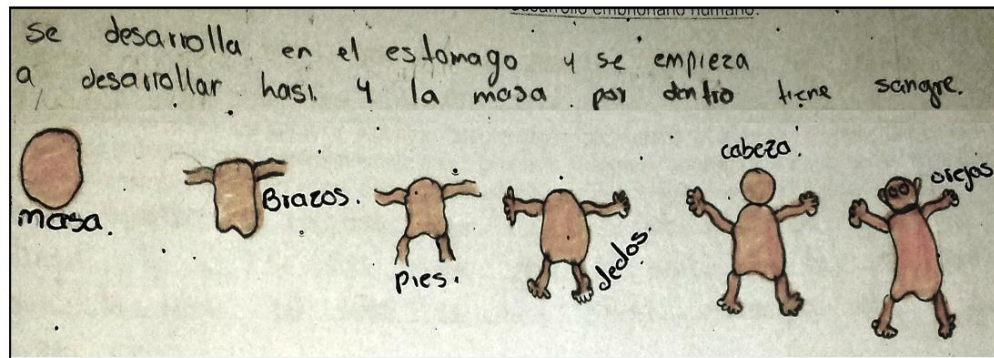 desarrollo embrionario humano.
se desarrolla en el estomago y se empieza
a desarrollar hasi. y la masa por dentro tiene sangre.
masa.
Brazos.
pies.
dedos.
cabeza.
orejas